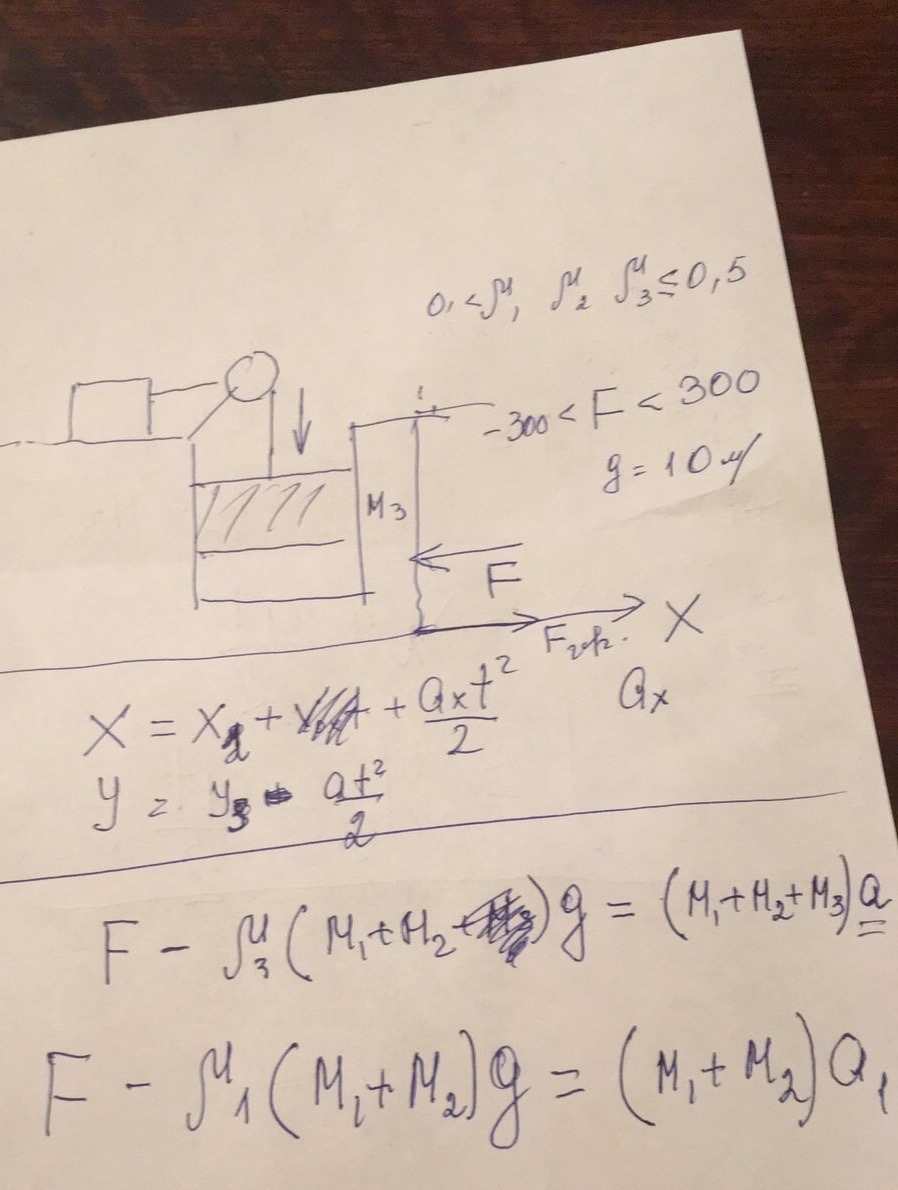 0,<μ₁ μ₂ μ₃≤0,5
-300<F<300
g=10 м/
M₃
F
Fтр.
X
aₓ
X = X₂ + + aₓt²/2
y = y₃ - at²/2
F - μ₃(M₁+M₂)g = (M₁+M₂+M₃)a
F - μ₁(M₁+M₂)g = (M₁+M₂)a₁